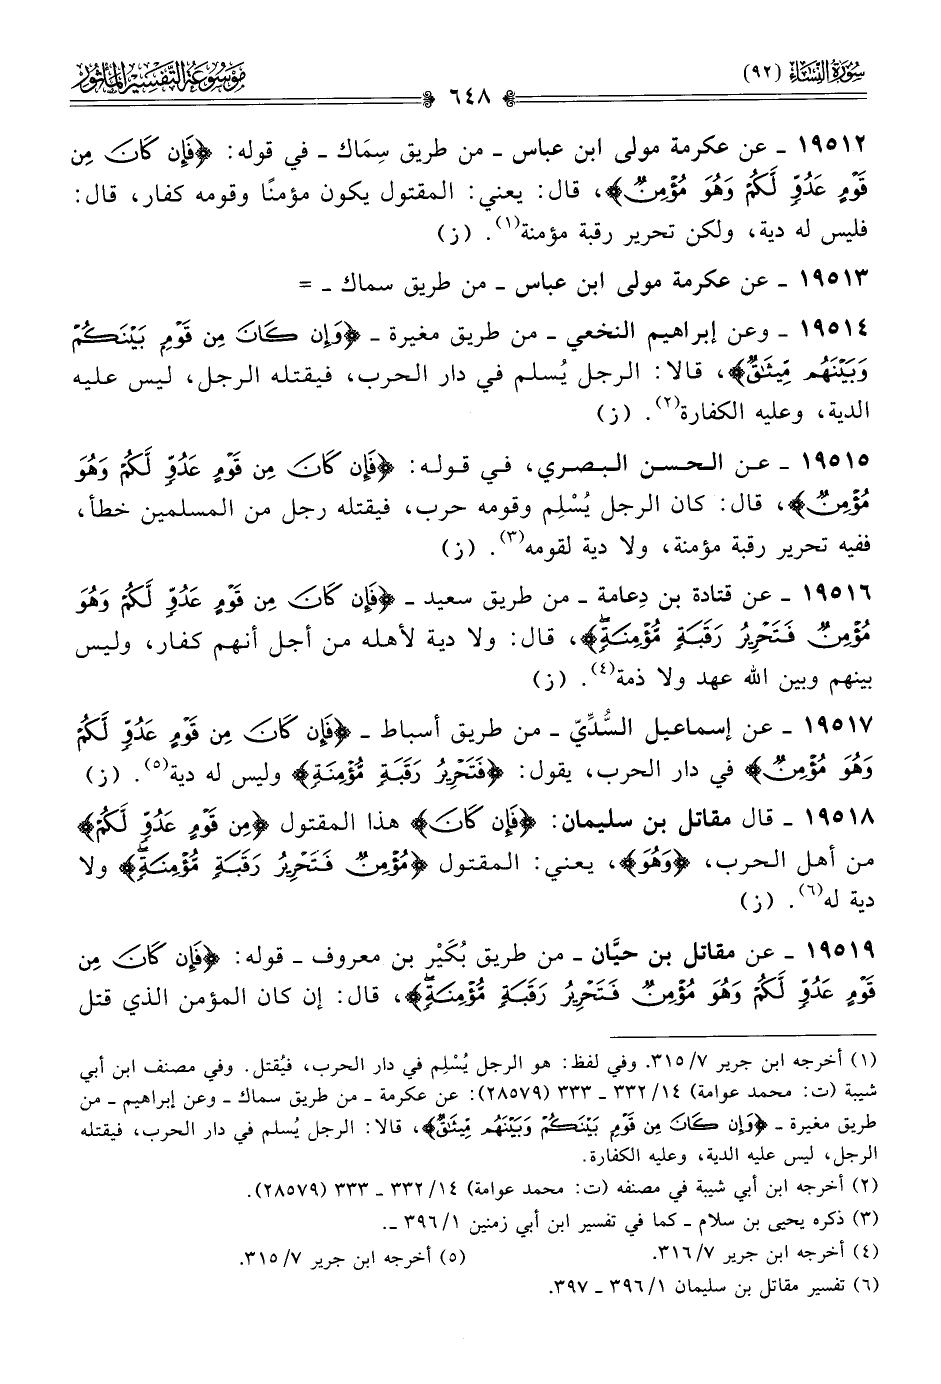 سُورَةُ النِّسَاء (٩٢)
مَوْسُوعَةُ التَّفْسِيرِ المَأْثُور
٦٤٨
١٩٥١٢ ـ عن عكرمة مولى ابن عباس ـ من طريق سِمَاك ـ في قوله: ﴿فَإِن كَانَ مِن
قَوْمٍ عَدُوٍّ لَّكُمْ وَهُوَ مُؤْمِنٌ﴾، قال: يعني: المقتول يكون مؤمنًا وقومه كفار، قال:
فليس له دية، ولكن تحرير رقبة مؤمنة(١). (ز)
١٩٥١٣ ـ عن عكرمة مولى ابن عباس ـ من طريق سماك ـ =
١٩٥١٤ ـ وعن إبراهيم النخعي ـ من طريق مغيرة ـ ﴿وَإِن كَانَ مِن قَوْمٍ بَيْنَكُمْ
وَبَيْنَهُم مِّيثَٰقٌ﴾، قالا: الرجل يُسلم في دار الحرب، فيقتله الرجل، ليس عليه
الدية، وعليه الكفارة(٢). (ز)
١٩٥١٥ ـ عن الحسن البصري، في قوله: ﴿فَإِن كَانَ مِن قَوْمٍ عَدُوٍّ لَّكُمْ وَهُوَ
مُؤْمِنٌ﴾، قال: كان الرجل يُسْلِم وقومه حرب، فيقتله رجل من المسلمين خطأ،
ففيه تحرير رقبة مؤمنة، ولا دية لقومه(٣). (ز)
١٩٥١٦ ـ عن قتادة بن دِعامة ـ من طريق سعيد ـ ﴿فَإِن كَانَ مِن قَوْمٍ عَدُوٍّ لَّكُمْ وَهُوَ
مُؤْمِنٌ فَتَحْرِيرُ رَقَبَةٍ مُّؤْمِنَةٍۖ﴾، قال: ولا دية لأهله من أجل أنهم كفار، وليس
بينهم وبين الله عهد ولا ذمة(٤). (ز)
١٩٥١٧ ـ عن إسماعيل السُّدِّيّ ـ من طريق أسباط ـ ﴿فَإِن كَانَ مِن قَوْمٍ عَدُوٍّ لَّكُمْ
وَهُوَ مُؤْمِنٌ﴾ في دار الحرب، يقول: ﴿فَتَحْرِيرُ رَقَبَةٍ مُّؤْمِنَةٍ﴾ وليس له دية(٥). (ز)
١٩٥١٨ ـ قال مقاتل بن سليمان: ﴿فَإِن كَانَ﴾ هذا المقتول ﴿مِن قَوْمٍ عَدُوٍّ لَّكُمْ﴾
من أهل الحرب، ﴿وَهُوَ﴾، يعني: المقتول ﴿مُؤْمِنٌ فَتَحْرِيرُ رَقَبَةٍ مُّؤْمِنَةٍۖ﴾ ولا
دية له(٦). (ز)
١٩٥١٩ ـ عن مقاتل بن حيَّان ـ من طريق بُكَيْر بن معروف ـ قوله: ﴿فَإِن كَانَ مِن
قَوْمٍ عَدُوٍّ لَّكُمْ وَهُوَ مُؤْمِنٌ فَتَحْرِيرُ رَقَبَةٍ مُّؤْمِنَةٍۖ﴾، قال: إن كان المؤمن الذي قتل
(١) أخرجه ابن جرير ٧/ ٣١٥. وفي لفظ: هو الرجل يُسْلِم في دار الحرب، فيُقتل. وفي مصنف ابن أبي
شيبة (ت: محمد عوامة) ١٤/ ٣٣٢ ـ ٣٣٣ (٢٨٥٧٩): عن عكرمة ـ من طريق سماك ـ وعن إبراهيم ـ من
طريق مغيرة ـ ﴿وَإِن كَانَ مِن قَوْمٍ بَيْنَكُمْ وَبَيْنَهُم مِّيثَٰقٌ﴾، قالا: الرجل يُسلم في دار الحرب، فيقتله
الرجل، ليس عليه الدية، وعليه الكفارة.
(٢) أخرجه ابن أبي شيبة في مصنفه (ت: محمد عوامة) ١٤/ ٣٣٢ ـ ٣٣٣ (٢٨٥٧٩).
(٣) ذكره يحيى بن سلام ـ كما في تفسير ابن أبي زمنين ١/ ٣٩٦ ـ.
(٤) أخرجه ابن جرير ٧/ ٣١٦.
(٥) أخرجه ابن جرير ٧/ ٣١٥.
(٦) تفسير مقاتل بن سليمان ١/ ٣٩٦ ـ ٣٩٧.